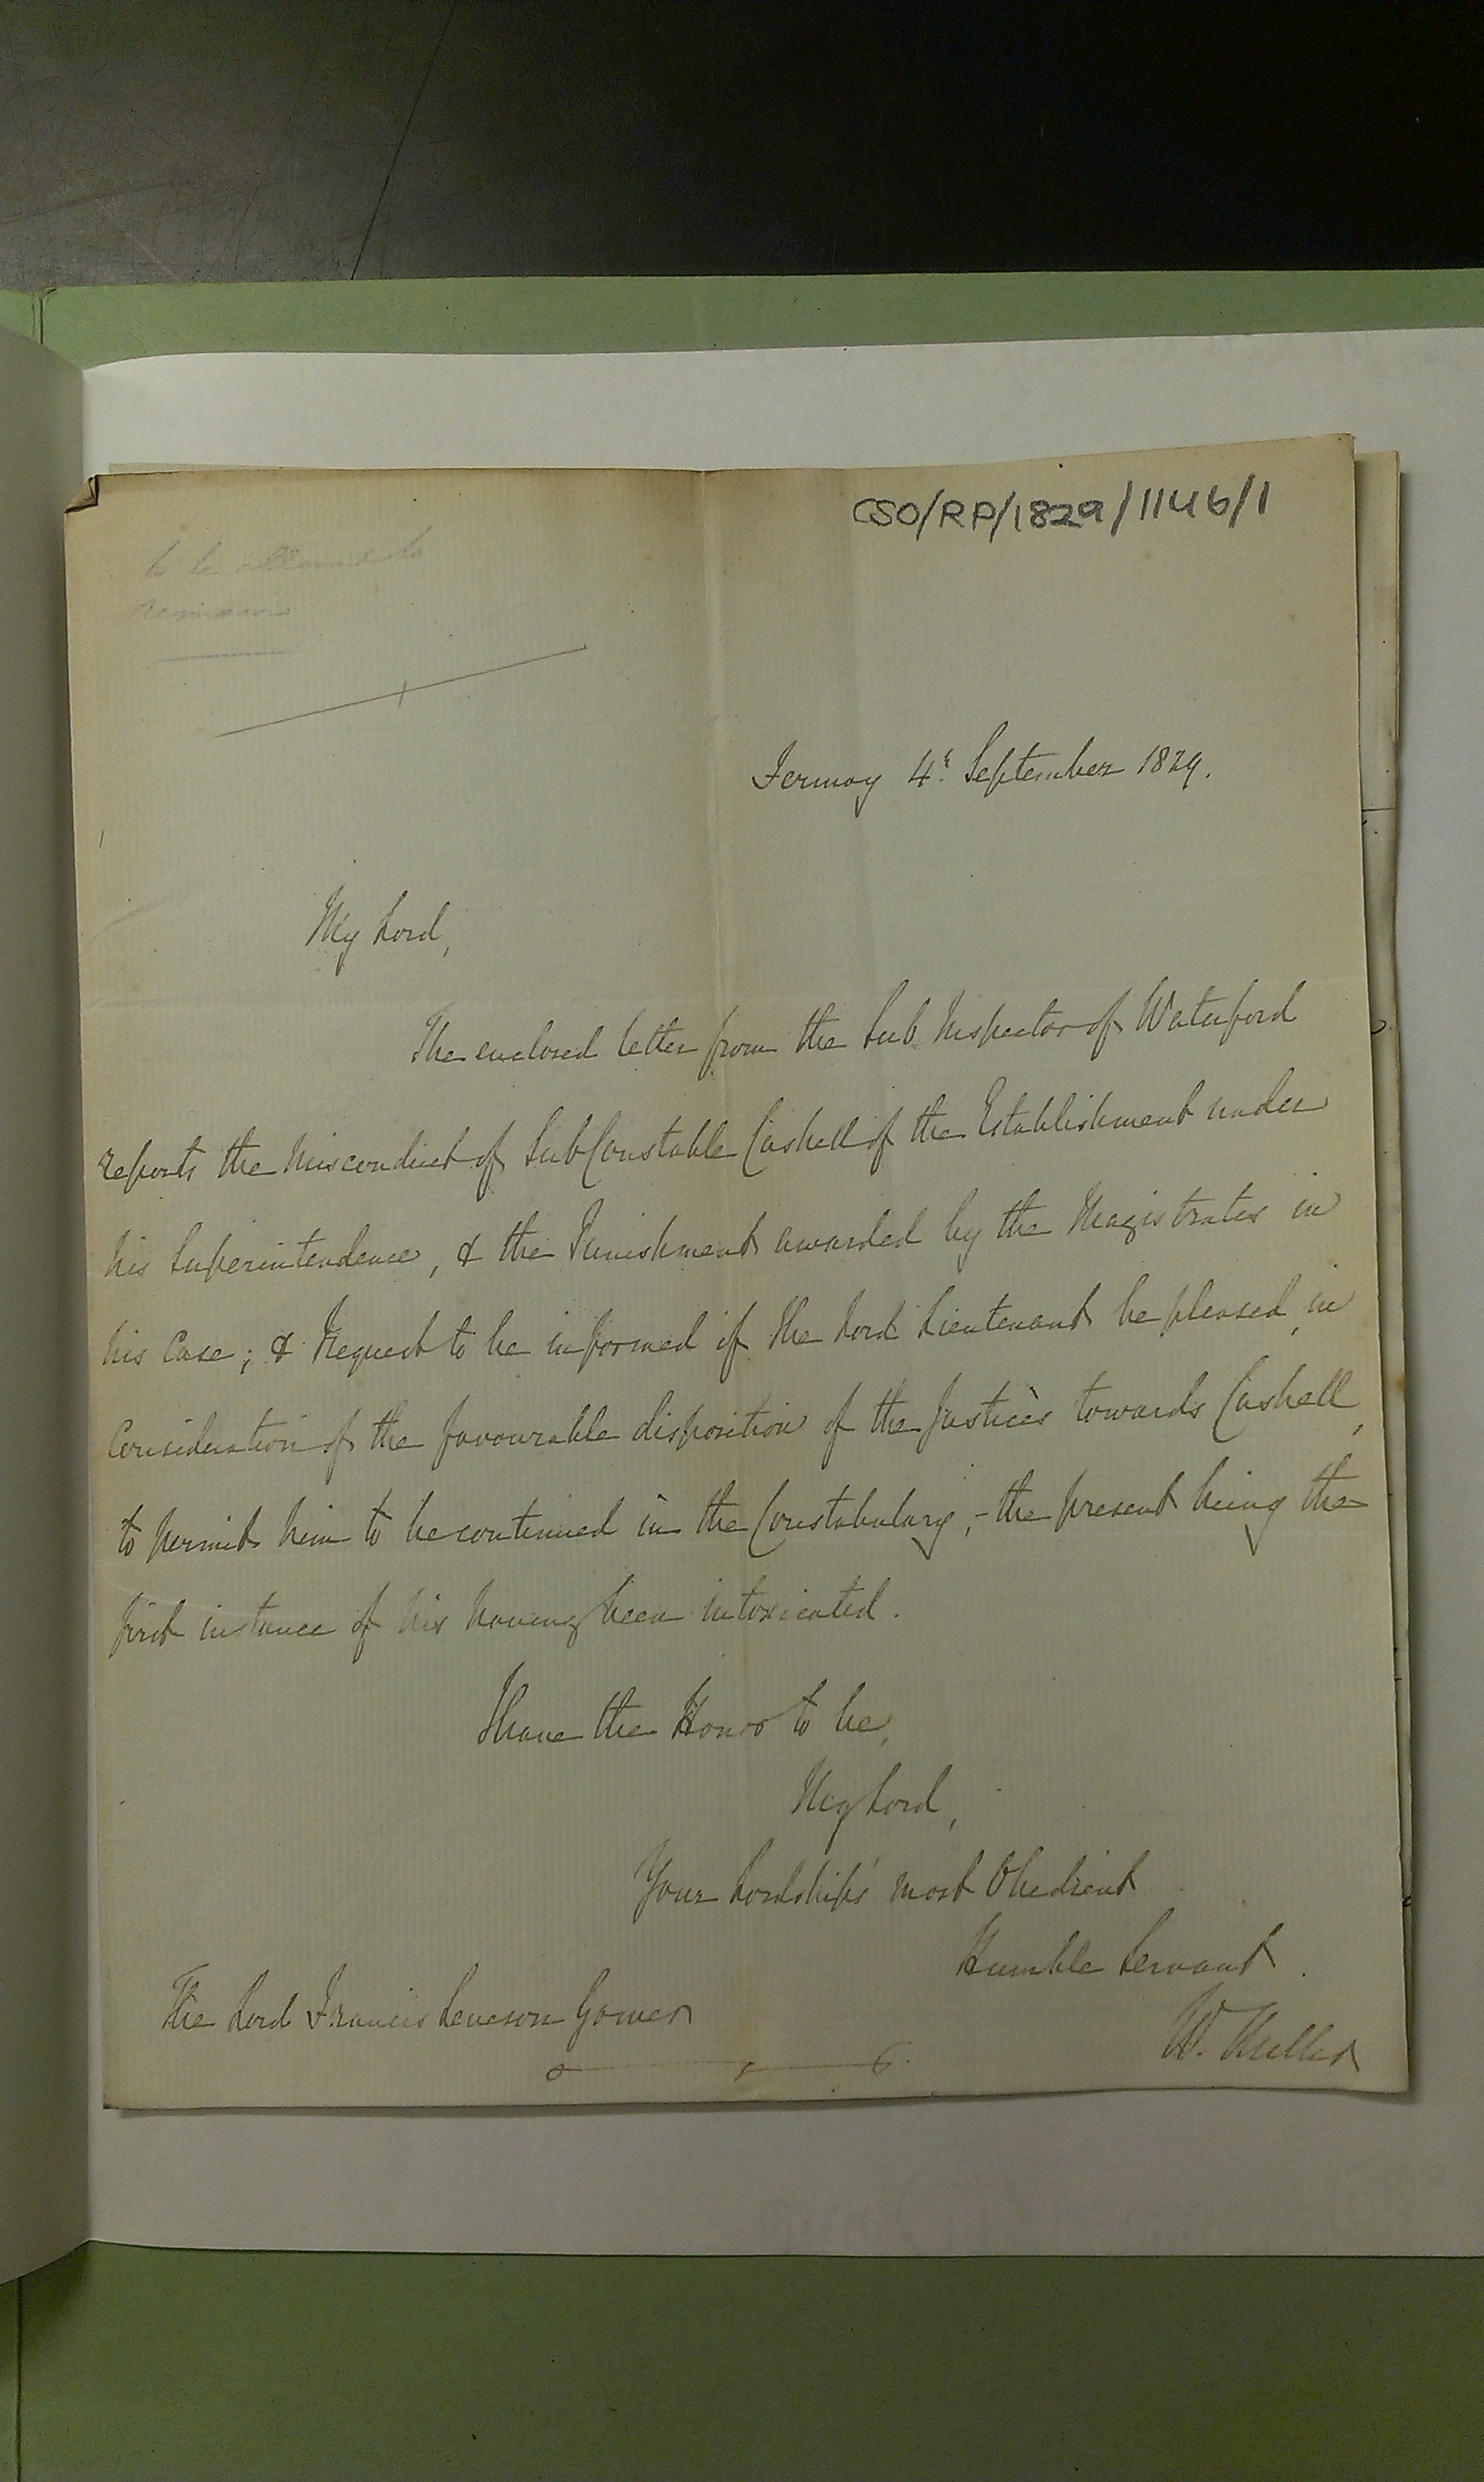 CSO/RP/1829/1146/1
to be allowed to
remain
Fermoy 4th September 1829.
My Lord,
The enclosed letter from the Sub Inspector of Waterford
reports the misconduct of Sub Constable Cashell of the Establishment under
his Superintendence, & the Punishment awarded by the Magistrates in
his Case; & I request to be informed if the Lord Lieutenant be pleased, in
Consideration of the favourable disposition of the Justices towards Cashell,
to permit him to be continued in the Constabulary,- the present being the
first instance of his having been intoxicated.
I have the Honor to be,
My Lord,
Your Lordship's most Obedient
Humble Servant.
W. Miller
The Lord Francis Leveson Gower